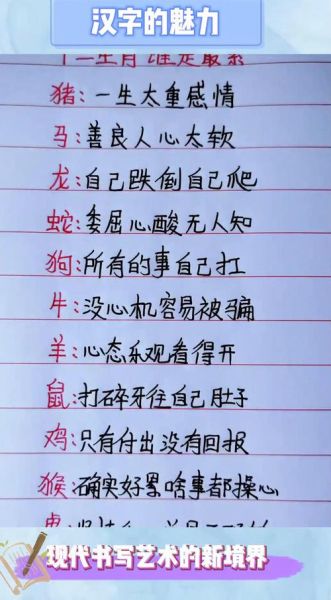 汉字的魅力
十二生肖 谁是最累
猪:一生太重感情
马:善良人心太软
龙:自己跌倒自己爬
蛇:委屈心酸无人知
狗:所有的事自己扛
牛:没心机容易被骗
羊:心态乐观看得开
鼠:打碎牙往自己肚子
鸡:只有付出没有回报
猴:确实好累啥事都操心
现代书写艺术的新境界